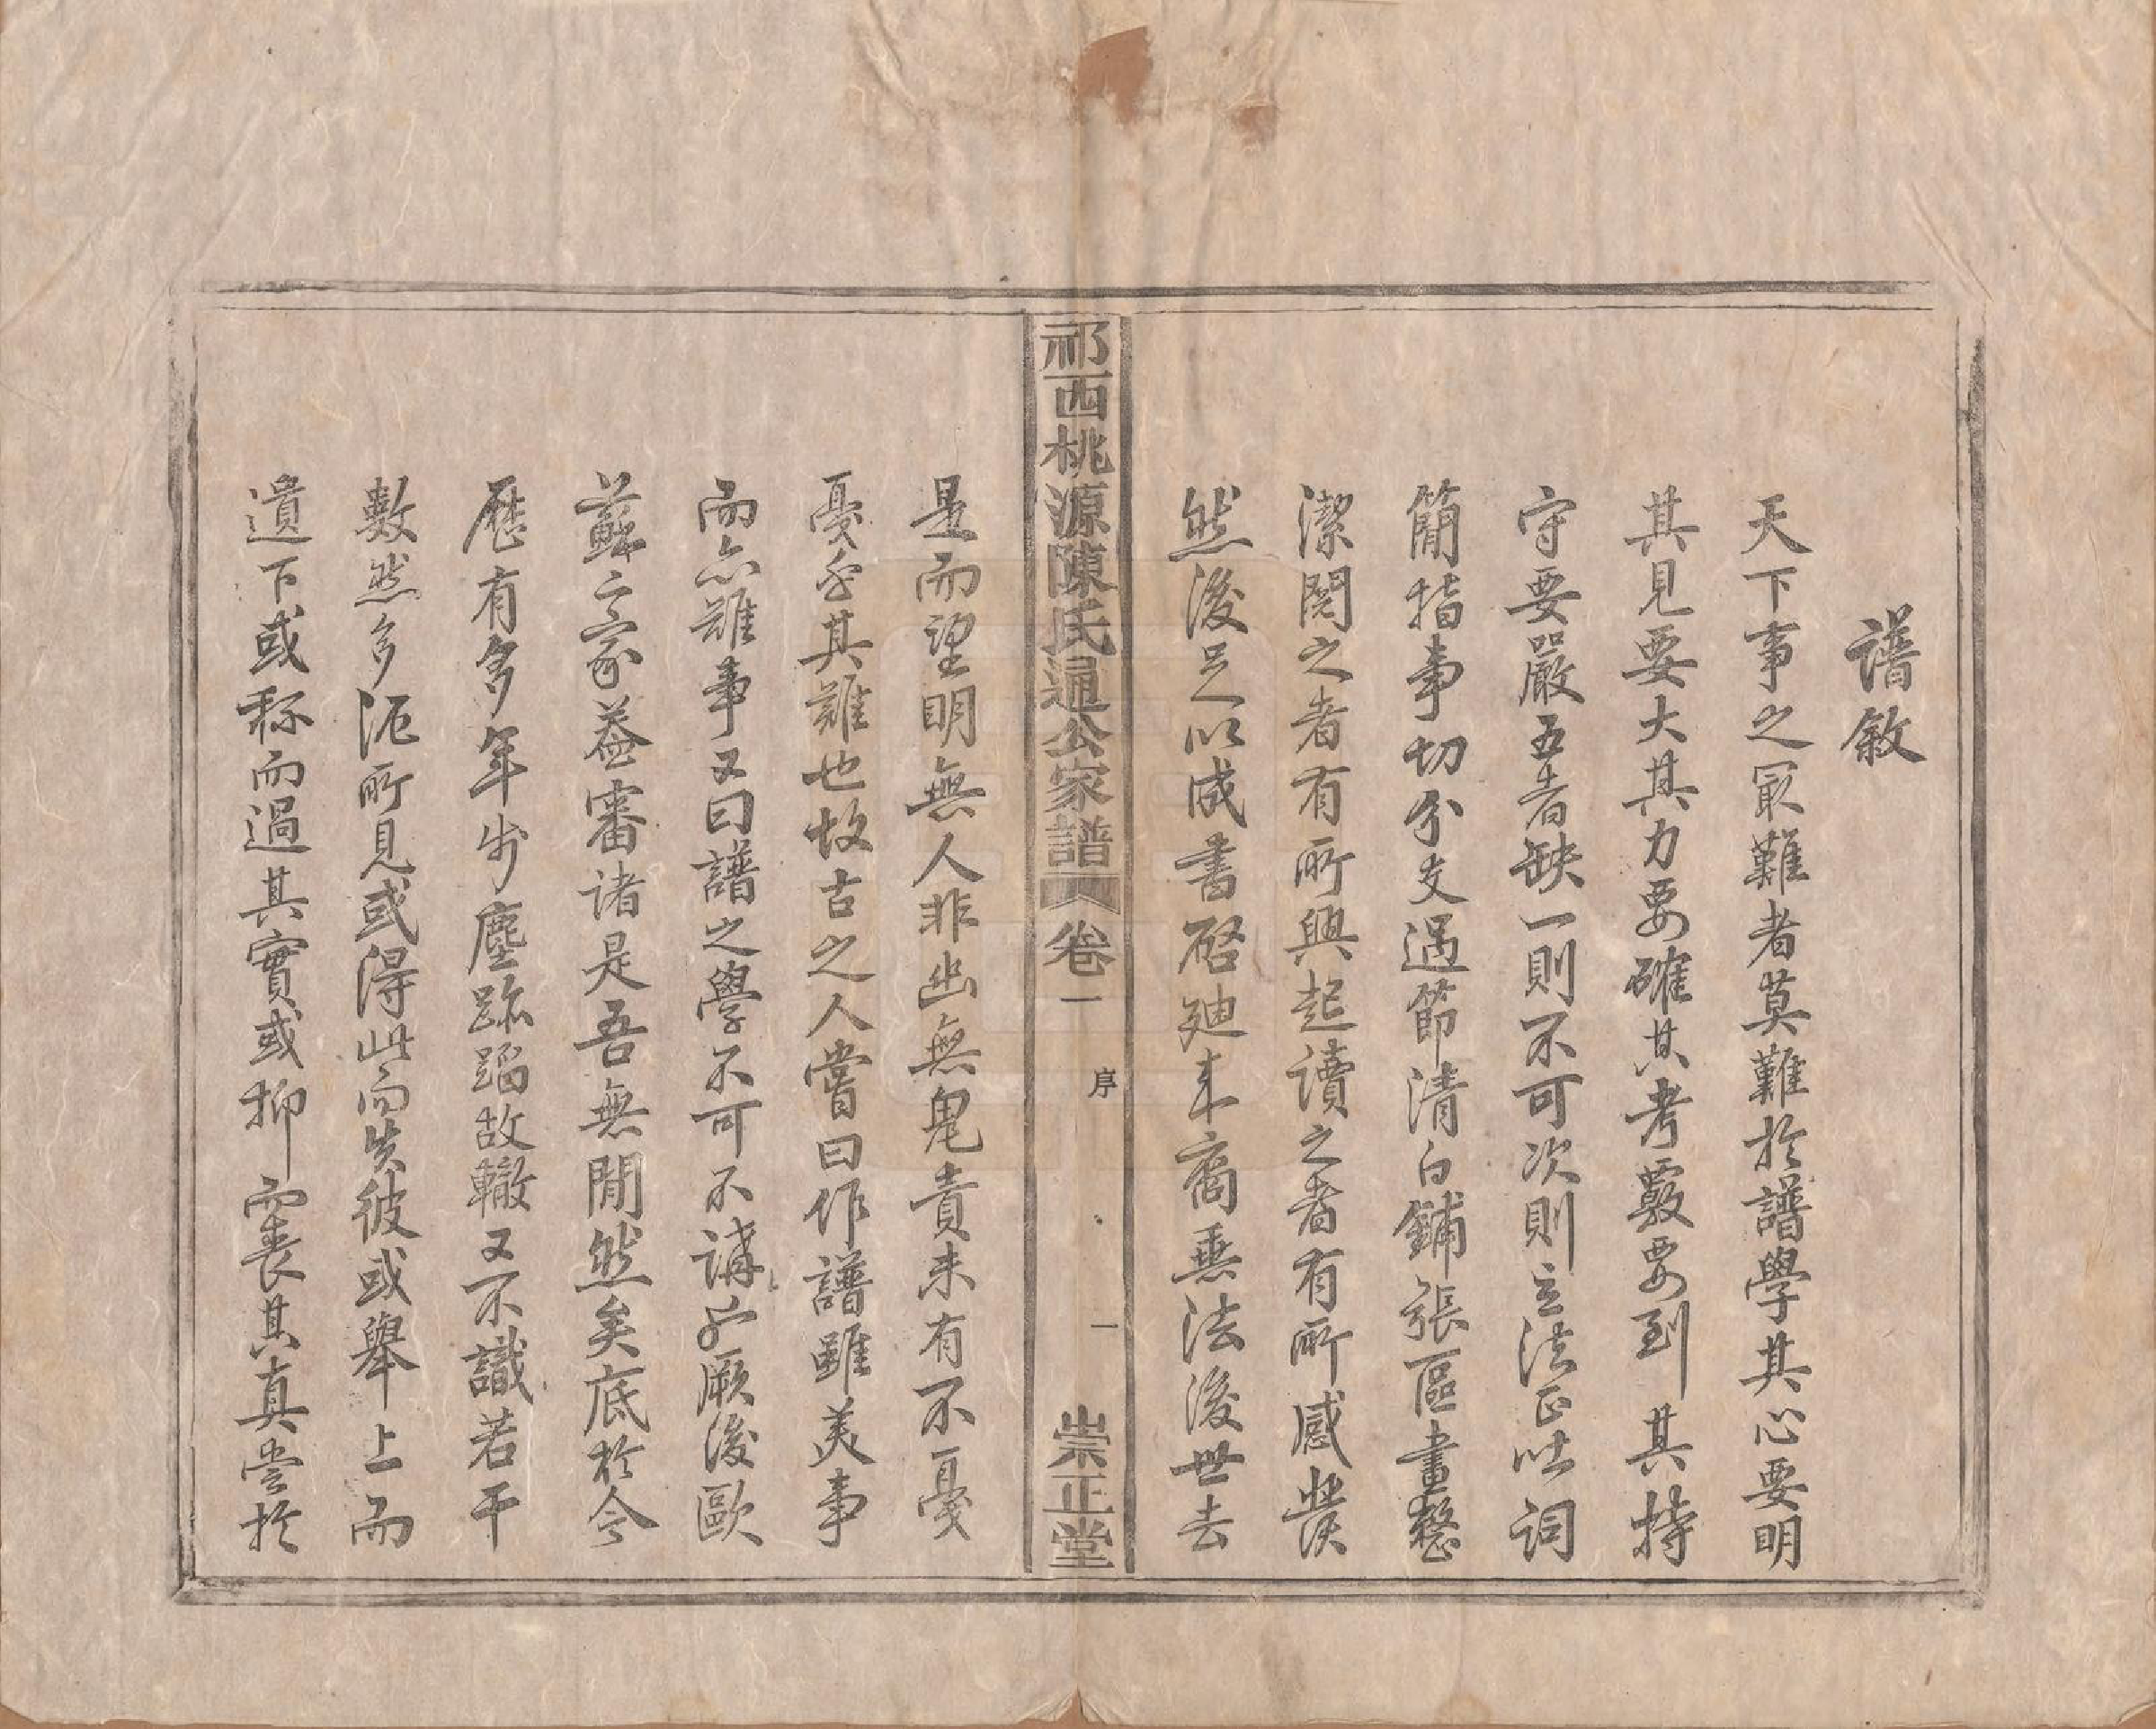 譜敘
天下事之冣難者莫難於譜學其心要明
其見要大其力要確其考覈要到其持
守要嚴五者缺一則不可次則立法正吐詞
簡指事切分支過節清白鋪張區畫整
潔閱之者有所興起讀之者有所感發
然後足以成書啓廸来裔垂法後世去
祁西桃源陳氏通公家譜 卷一 序 一 崇正堂
是而望明無人非幽無鬼責未有不憂
憂乎其難也故古之人嘗曰作譜雖美事
而亦難事又曰譜之學不可不講也厥後歐
蘇二家益審諸是吾無閒然矣底於今
歷有多年步塵跡蹈故轍又不識若干
數然多泥所見或得此而失彼或舉上而
遺下或称而過其實或抑而喪其真嘗於